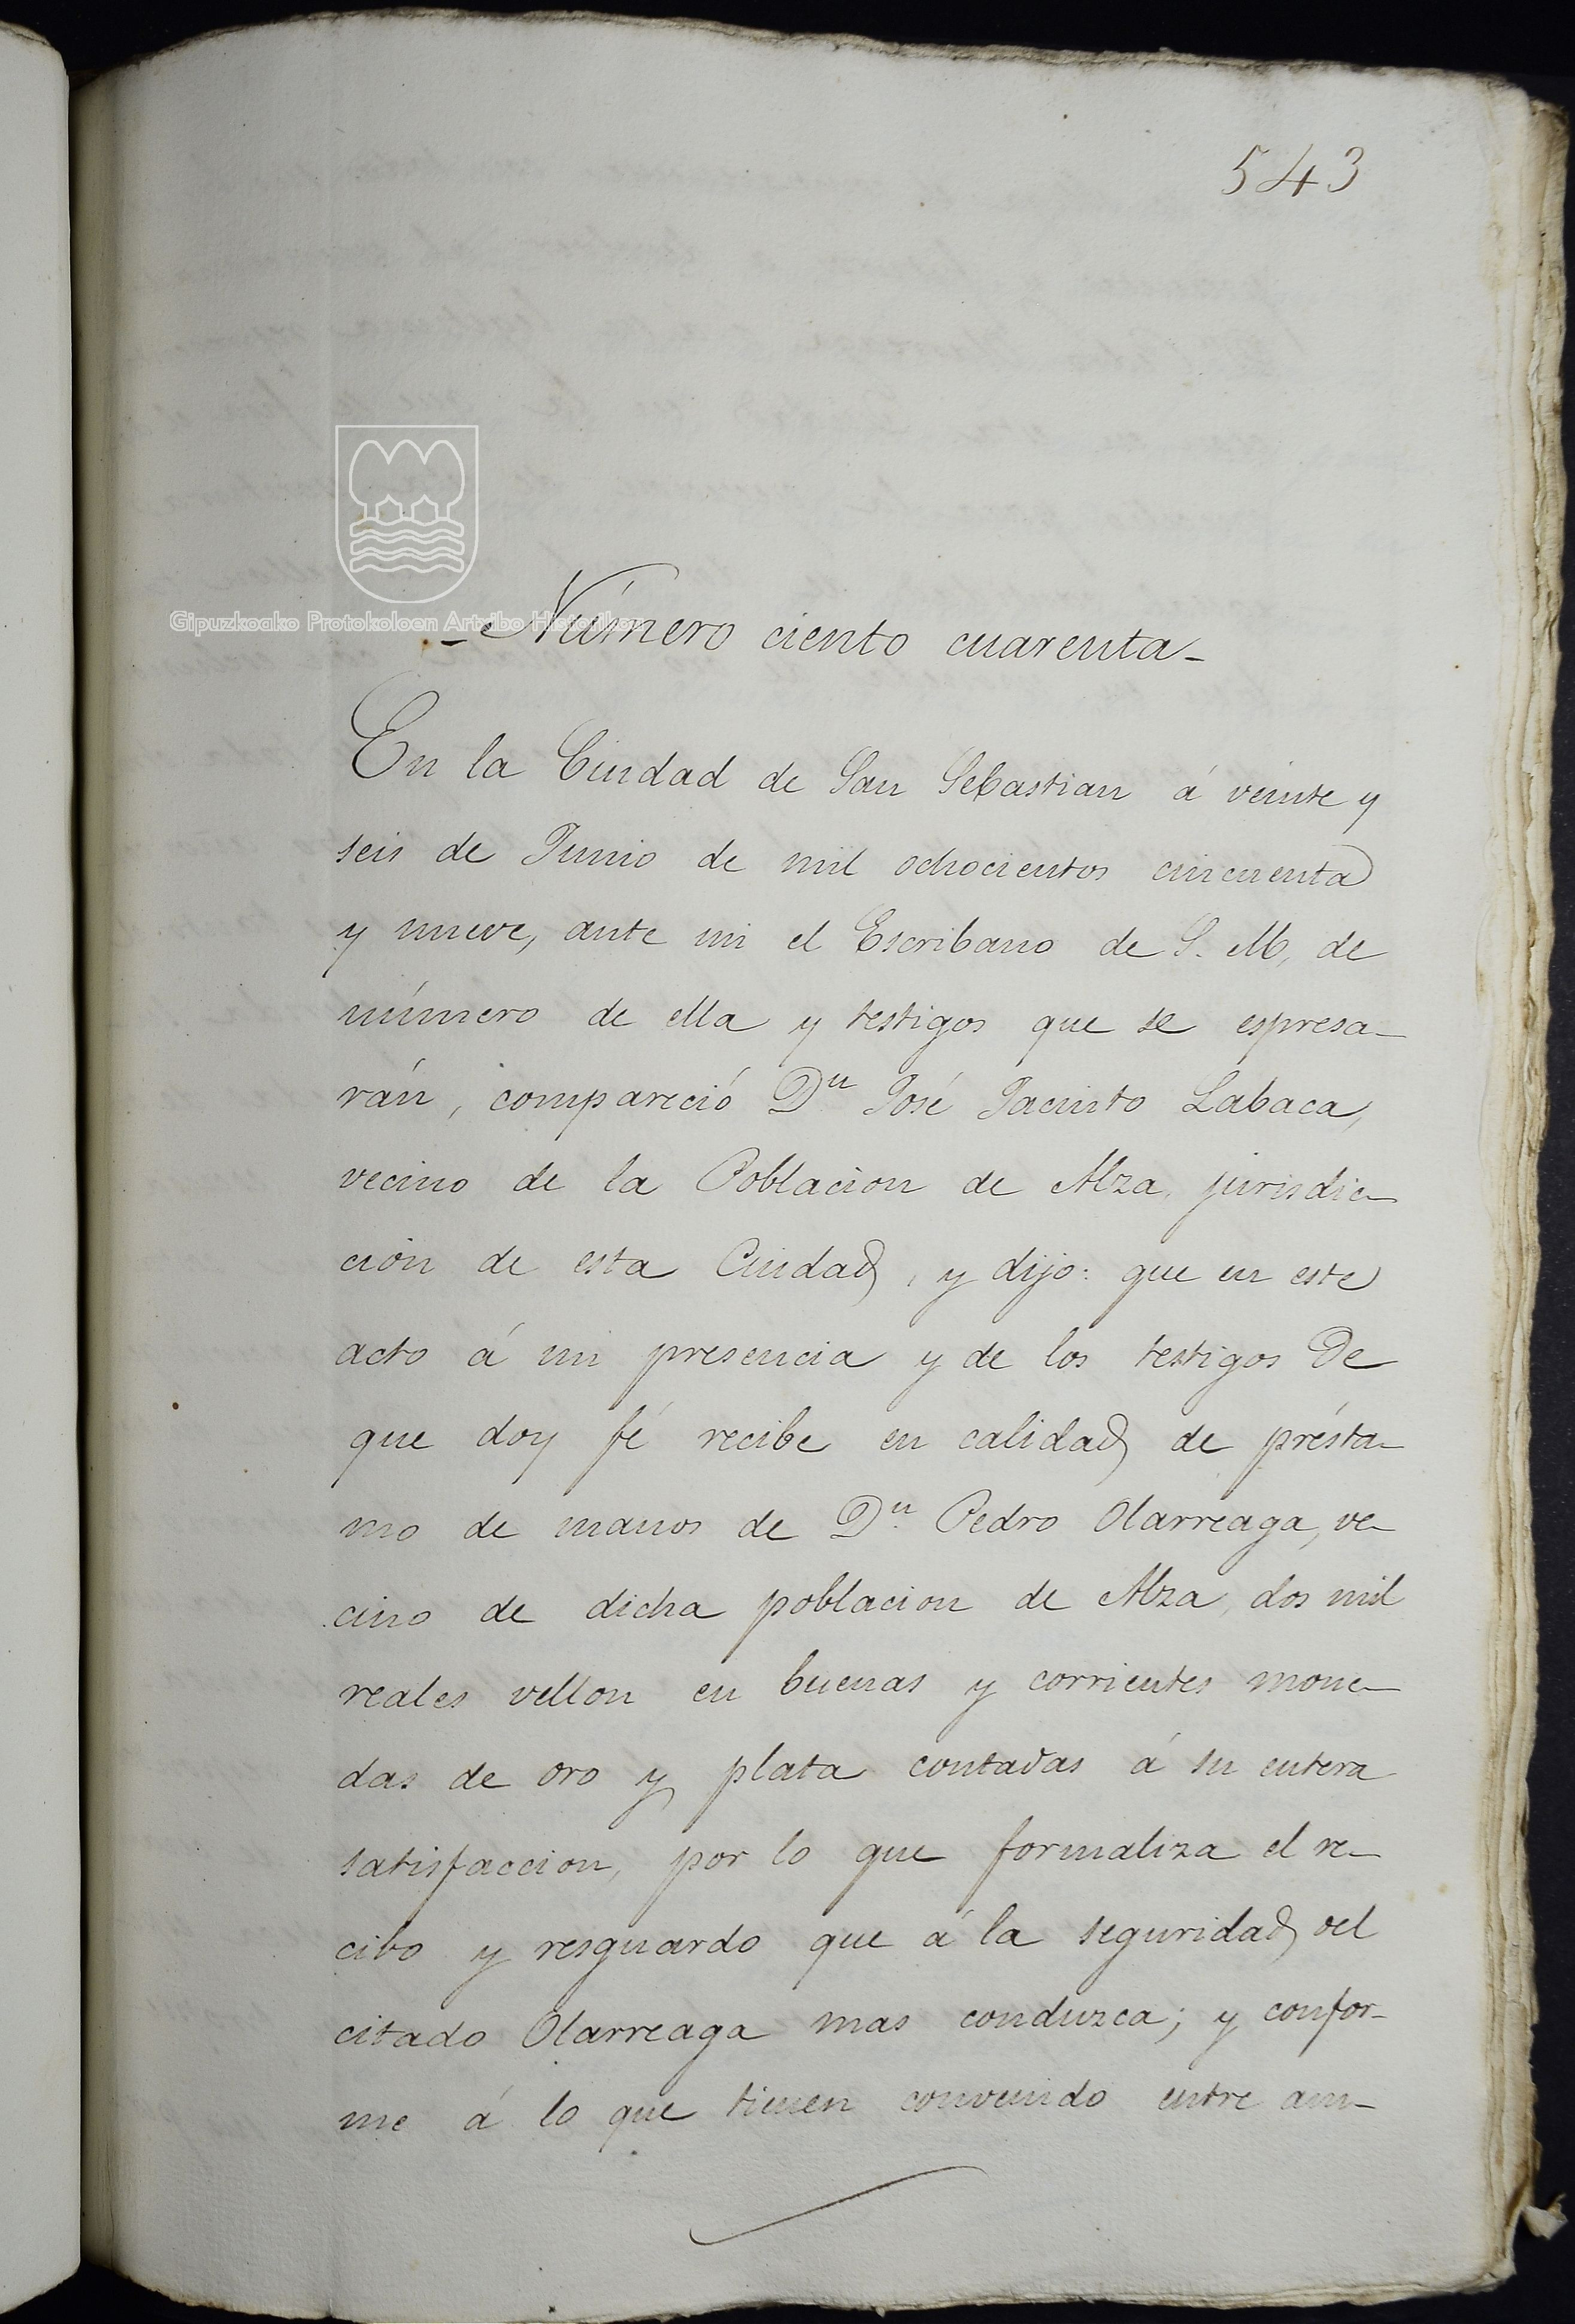 543
Gipuzkoako Protokoloen Artxibo Historikoa
- Número ciento cuarenta -
En la Ciudad de San Sebastian á veinte y
seis de Junio de mil ochocientos cincuenta
y nueve, ante mi el Escribano de S. M, de
número de ella y testigos que se espresa-
rán, compareció Dn José Jacinto Labaca,
vecino de la Poblacion de Alza, jurisdic-
ción de esta Ciudad, y dijo: que en este
acto á mi presencia y de los testigos De
que doy fé recibe en calidad de présta-
mo de manos de Dn. Pedro Olarreaga, ve-
cino de dicha poblacion de Alza, dos mil
reales vellon en buenas y corrientes mone-
das de oro y plata contadas á su entera
satisfaccion, por lo que formaliza el re-
cibo y resguardo que á la seguridad del
citado Olarreaga mas conduzca; y confor-
me á lo que tienen convenido entre am-